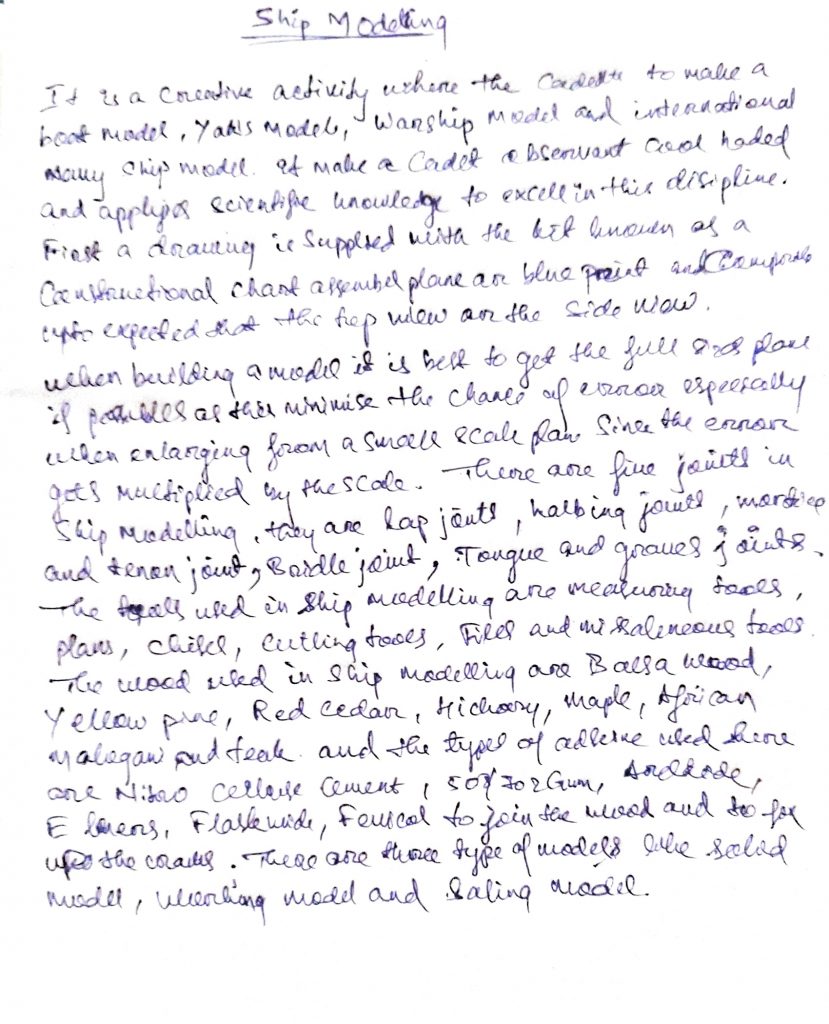 Ship Modelling
It is a Creative activity where the Cadets to make a
boat model, Yahs Model, Warship Model and international
many ship model. It make a Cadet observant and haded
and applys scientific knowledge to excell in this disipline.
First a drawing is Supplied with the kit known as a
Constructional chart assembel plane are blue print and
upto expected that the top view are the side view.
when building a model it is best to get the full size plane
if possible as this minimise the chance of error especially
when enlarging from a small scale plan Since the error
gets multiplied by the scale. There are five joints in
Ship Modelling, they are lap joints, halbing joints,
and tenon joint, Bridle joint, Tongue and groves joints.
The tools used in Ship modelling are measuring tools,
plans, chisel, cutting tools, Files and missaleneous tools.
The wood used in ship modelling are Balsa wood,
Yellow pine, Red cedar, Hickory, maple, African
Mahogani and teak. and the types of adhesive used here
are Nitro Cellulose Cement, Gum,
to join the wood and to fix
the cracks. There are three type of models like solid
model, working model and Saling model.